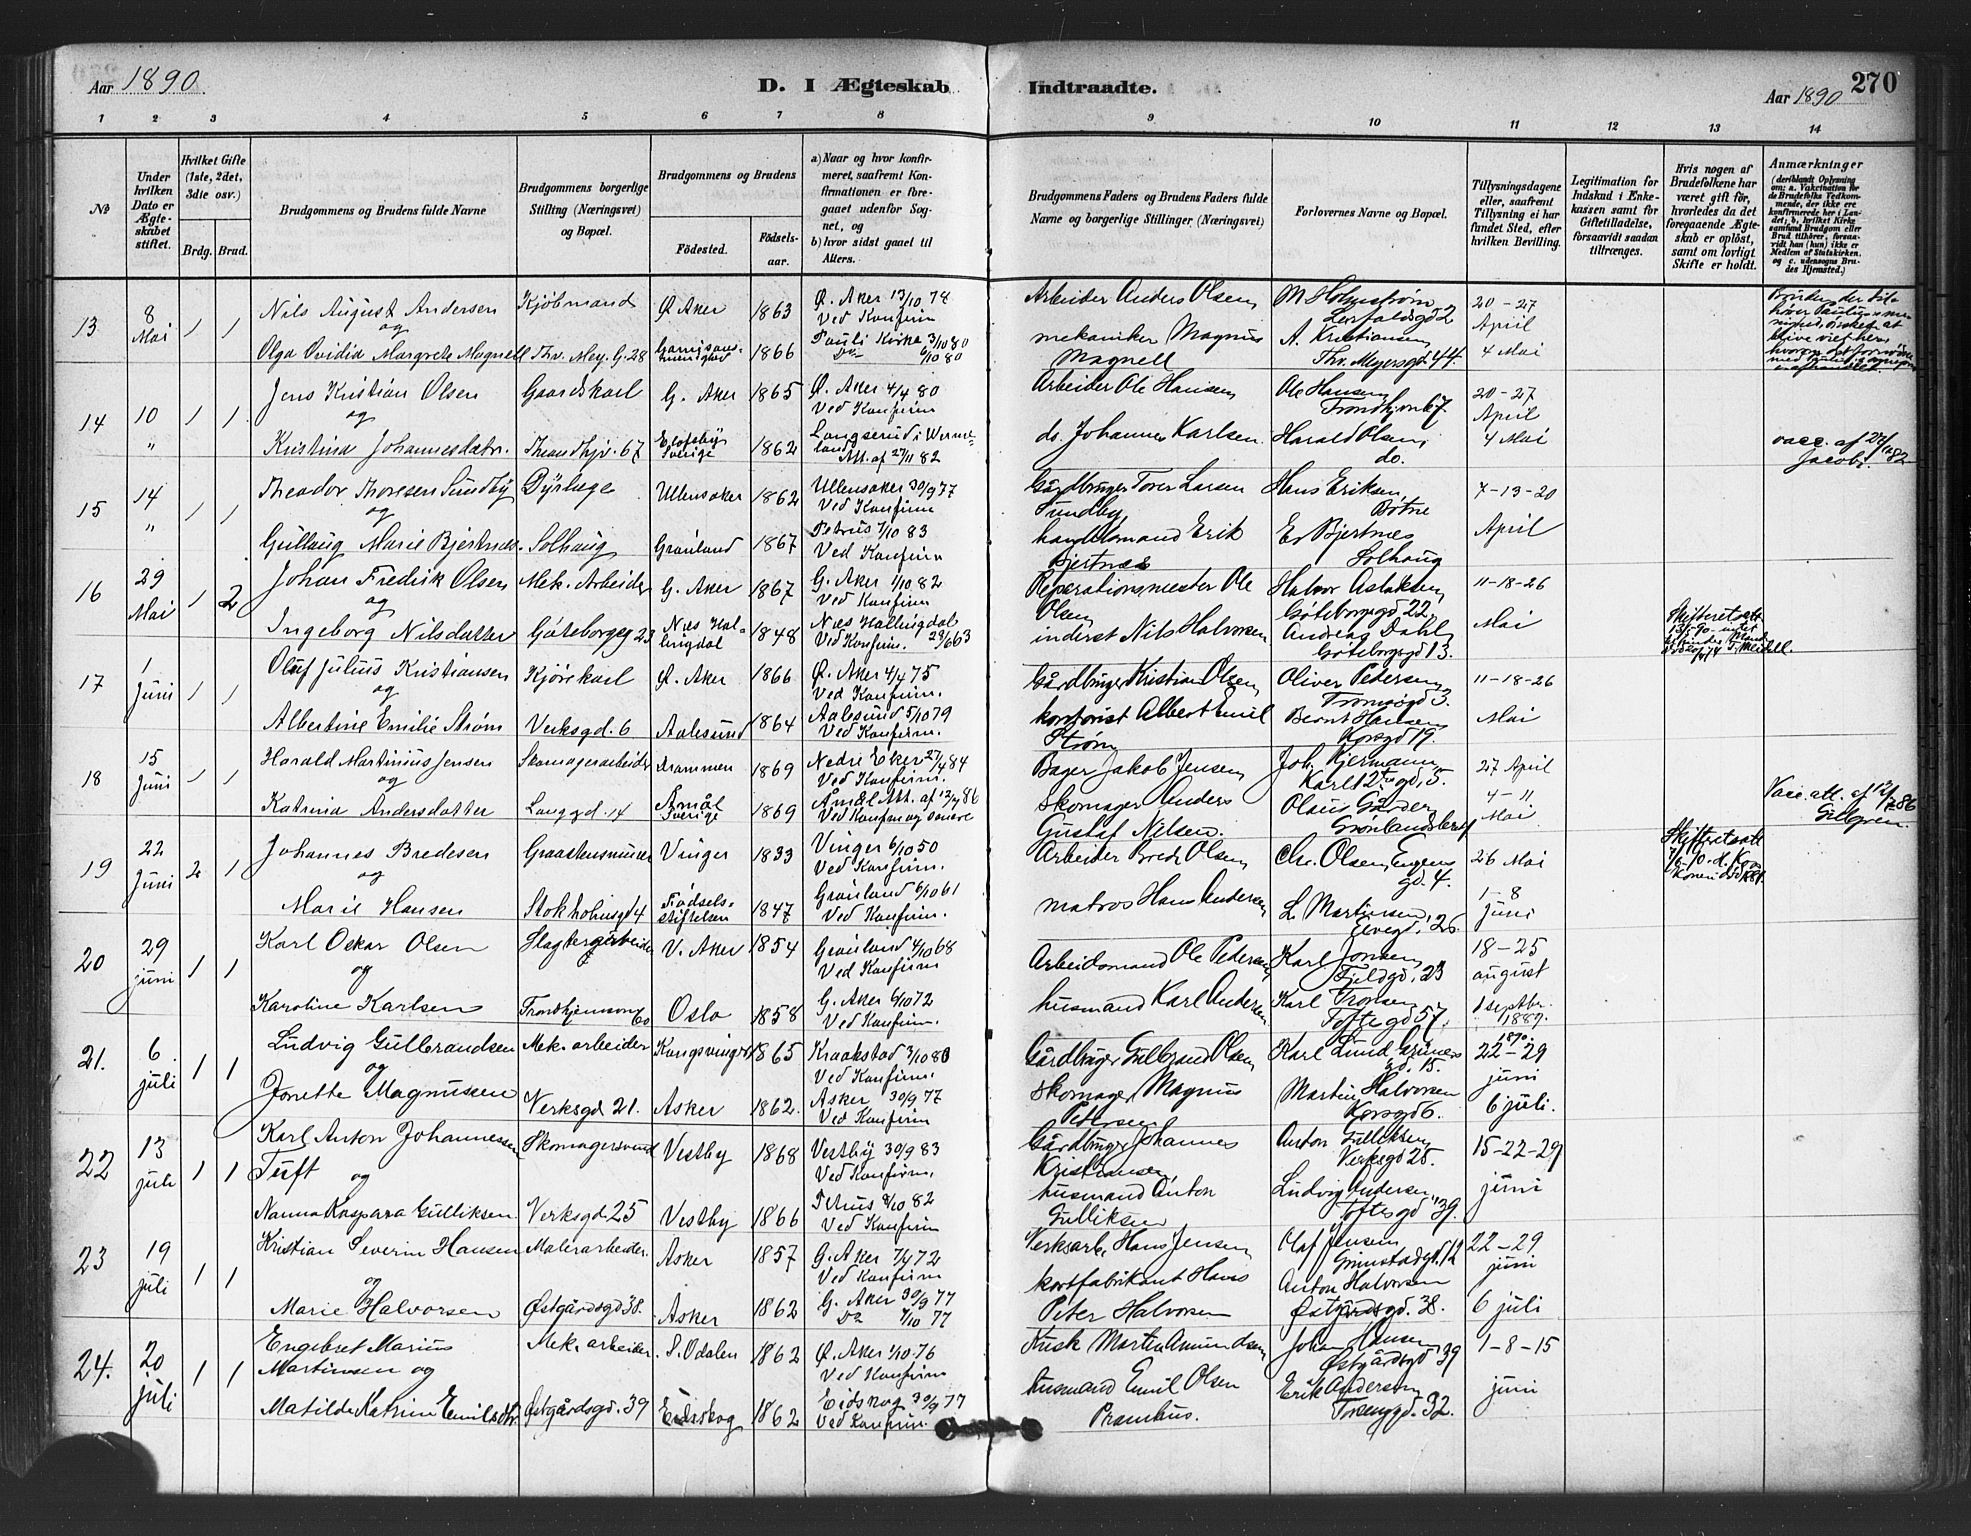 Aar 1890
D. I Ægteskab Indtraadte.
270
Aar 1890
1 2 3 4 5 6 7 8 9 10 11 12 13 14
№
Under hvilken Dato er Ægteskabet stiftet.
Hvilket Gifte (1ste, 2det, 3die osv.)
Brdg. Brud.
Brudgommens og Brudens fulde Navne
Brudgommens borgerlige Stilling (Næringsvei) og Bopæl.
Brudgommens og Brudens
Födested.
Födselsaar.
a) Naar og hvor konfirmeret, saafremt Konfirmationen er foregaaet udenfor Sognet, og
b) hvor sidst gaaet til Alters.
Brudgommens Faders og Brudens Faders fulde Navne og borgerlige Stillinger (Næringsvei)
Forlovernes Navne og Bopæl.
Tillysningsdagene eller, saafremt Tillysning ei har fundet Sted, efter hvilken Bevilling.
Legitimation for Indskud i Enkekassen samt for Giftetilladelse, forsaavidt saadan tiltrænges.
Hvis nogen af Brudefolkene har været gift för, hvorledes da det foregaaende Ægteskab er oplöst, samt om lovligt Skifte er holdt.
Anmærkninger
(deriblandt Oplysning om: a. Vakcination for de Brudefolks Vedkommende, der ikke ere konfirmerede her i Landet; b. hvilket Kirkesamfund Brudgom eller Brud tilhörer, forsaavidt han (hun) ikke er Medlem af Statskirken, og c. udensogns Brudes Hjemsted.)
13 8 Mai 1 1 Nils August Andersen Kjöbmand Ø. Aker 1863 Ø. Aker 13/10 78 Ved Konfirm
Arbeider Anders Olsen M Holmström 20-27 April
og
Olga Ovidia Margrete Magnell Thv. Mey. G. 28 1866 Pauli Kirke 3/10 80 Do 6/10 80
mekaniker Magnus Magnell A. Kristiansen Thv. Meyersgd 44. 4 Mai
14 10 " 1 1 Jens Kristian Olsen Gaardskarl G. Aker 1865 Ø. Aker 4/4 80 Ved Konfirm
Arbeider Ole Hansen Ole Hansen Trondhjemv 67. 20-27 April
og
Kristina Johannesdatr. Trondhjv. 67 Sverige 1862 Langserud i Wermeland Att. af 27/11 82
do. Johannes Karlsen Harald Olsen, do. 4 Mai vacc. af Jacobs.
15 14 " 1 1 Theodor Thoresen Sundby Dyrlæge Ullensaker 1862 Ullensaker 30/9 77 Ved Konfirm
Gårdbruger Torer Larsen Sundby Hans Eriksen, Botne 7-13-20 April
og
Gullaug Marie Bjertnæs Solhaug Grønland 1867 Petrus 7/10 83 Ved Konfirm
handelsmand Erik Bjertnæs E. Bjertnæs Solhaug
16 29 Mai 1 2 Johan Fredrik Olsen Mek. Arbeider G. Aker 1867 G. Aker 1/10 82 Ved Konfirm
Reperationsmester Ole Olsen Halvor Aslaksen, Göteborgsgd 22, 11-18-26 Mai
og
Ingeborg Nilsdatter Göteborgsg 23 Næs Hallingdal 1848 Næs Hallingdal Ved Konfirm. 23/6 63
inderst Nils Halvorsen Andreas Dahl, Göteborgsgd 13. Skifteretsatt.
17 1 Juni 1 1 Oluf Julius Kristiansen Kjørekarl Ø. Aker 1866 Ø. Aker 4/4 75 Ved Konfirm.
Gårdbruger Kristian Olsen Oliver Pedersen, Tromsøgd 3. 11-18-26 Mai
og
Albertine Emilie Strøm Verksgd. 6 Aalesund 1864 Aalesund 5/10 79 Ved Konfirm.
kontorist Albert Emil Strøm Bernt Hansen, Korsgd 19.
18 15 Juni 1 1 Harald Martinius Jensen Skomagerarbeider Drammen 1869 Nedre Eker 27/4 84 Ved Konfirm.
Bager Jakob Jensen Joh. Hjermann, Karl 12tes gd. 5. 27 April
og
Katrina Andersdatter Langgd. 14 Åmål Sverige 1869 Åmål Att. af 12/7 86 Ved Konfirm og senere
Skomager Anders Gustaf Nilsen. Olaus Grønlandsleret 4-11 Mai Vacc. att. af 12/7 86
19 22 Juni 2 1 Johannes Bredesen Graastensmurer Vinger 1833 Vinger 6/10 50 Ved Konfirm.
Arbeider Brede Olsen, Chr. Olsen, Eugens gd. 4. 26 Mai Skifteretsatt
og
Marie Hansen Stokholmsgd 4 Födselsstiftelsen 1847 Grønland 6/10 61 Ved Konfirm.
matros Hans Andersen L. Martinsen, Elvegd. 26. 1-8 Juni
20 29 juni 1 1 Karl Oskar Olsen Slagterarbeider V. Aker 1854 Grønland 4/10 68 Ved Konfirm
Arbeidsmand Ole Pedersen, Karl Jonsen, Fjeldgd. 23 18-25 august
og
Karoline Karlsen Trondhjemsv 60 Oslo 1858 G. Aker 6/10 72 Ved Konfirm.
husmand Karl Andersen Karl Tronsen Toftegd 57. 1 septbr. 1889.
21. 6 juli 1 1 Ludvig Gulbrandsen Mek. arbeider Kongsvinger 1865 Kraakstad 3/10 80 Ved Konfirm.
Gårdbruger Gulbrand Olsen Karl Lund Grüners gd. 15. 1890. 22-29 juni
og
Jonette Magnussen Verksgd 21. Asker 1862. Asker 30/9 77 Ved Konfirm
Skomager Magnus Petersen Martin Halvorsen Korsgd 6. 6 juli.
22 13 juli 1 1 Karl Anton Johannessen Tuft Skomagersvend Vestby 1868 Vestby 30/9 83 Ved Konfirm.
Gårdbruger Johannes Kristiansen Anton Gulliksen Verksgd 25. 15-22-29 juni
og
Nanna Kaspara Gulliksen Verksgd 25 Vestby 1866 Petrus 8/10 82 Ved Konfirm
husmand Anton Gulliksen Ludvig Andersen, Toftes gd 39.
23 19 juli 1 1 Kristian Severin Hansen Malerarbeider. Asker 1857 G. Aker 7/4 72 Ved Konfirm
Verksarb. Hans Jensen Olaf Jensen Grimstadgd. 12 22-29 juni
og
Marie Halvorsen Østgårdsgd 38. Asker 1862 G. Aker 30/9 77 Do 7/10 77
kortfabrikant Hans Peter Halvorsen Anton Halvorsen Østgårdsgd. 38. 6 juli
24. 20 juli 1 1 Engebret Marius Martinsen og Mek. arbeider S. Odalen 1862 Ø. Aker 1/10 76 Ved Konfirm
Kusk Martin Amundsen, Johan Hansen Østgårdsgd 39 1-8-15 juni
Matilde Katrine Emilsdtr. Østgårdsgd. 39 Eidskog 1862 Eidskog 30/9 77 Ved Konfirm.
husmand Emil Olsen Pramhus. Erik Anderson Torsenggd. 32.